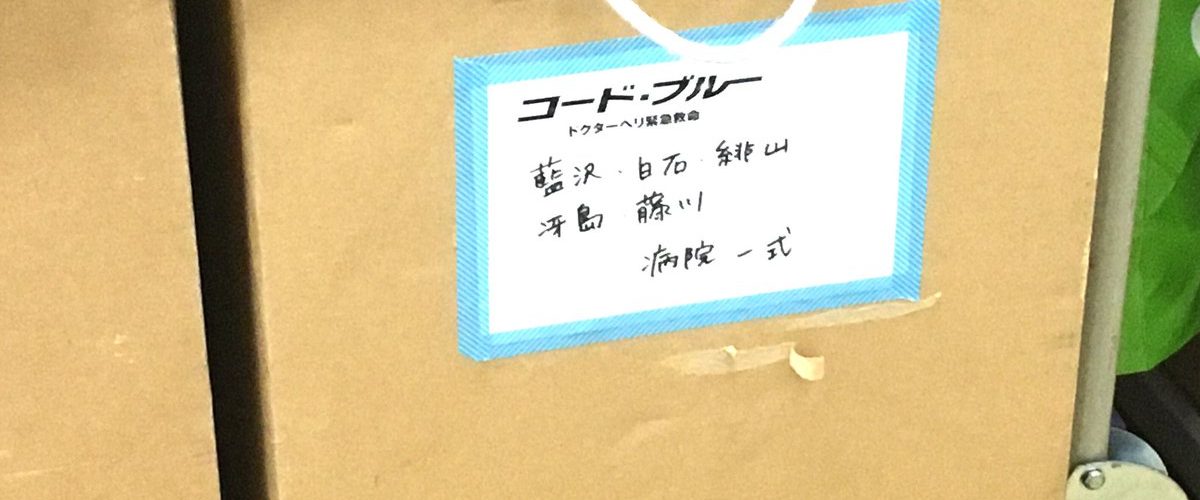 コード・ブルー
ドクターヘリ緊急救命
藍沢・白石・緋山
冴島・藤川
病院一式